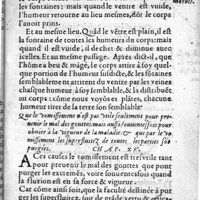 les fontaines: mais quand le ventre est vuide,
l'humeur retourne au lieu mesmes, dõt le corps
l'auoit prins.
Et au mesme lieu. Quãd le vẽtre est plain, il est
la fontaine de toutes les humeurs du corps: mais
quand il est vuide, il dechet & diminue auec
icelles. Et au mesme passage. Apres dict-il, que
l'hõme a beu & mãgé, le corps attire à soy quel-
que portion de l'humeur susdicte, & les fõtaines
semblablemẽt en attirent par les veines
chasque humeur à soy semblable, & la distribuẽt
au corps: cõme nous voyõs és plãtes, chascun
humeur tirer de la terre son semblable
Que le vomissement n'est pas vtile seulement pour pre-
uenir le mal des gouttes, mais aussi souuentesfois pour
obuier à la vigueur de la maladie: Et que par le vo-
missement les superfluitez de toutes les parties sõt
purgées. CHAP. XV.
A Ces causes le vomissement est treutile tant
pour preuenir le mal des gouttes que pour
purger les excremẽts, voire souuentesfois quand
la fluxion est en sa force & vigueur.
Car côme ainsi soit, que la faculté destinée à pur-
ger les superfluitez, soit de